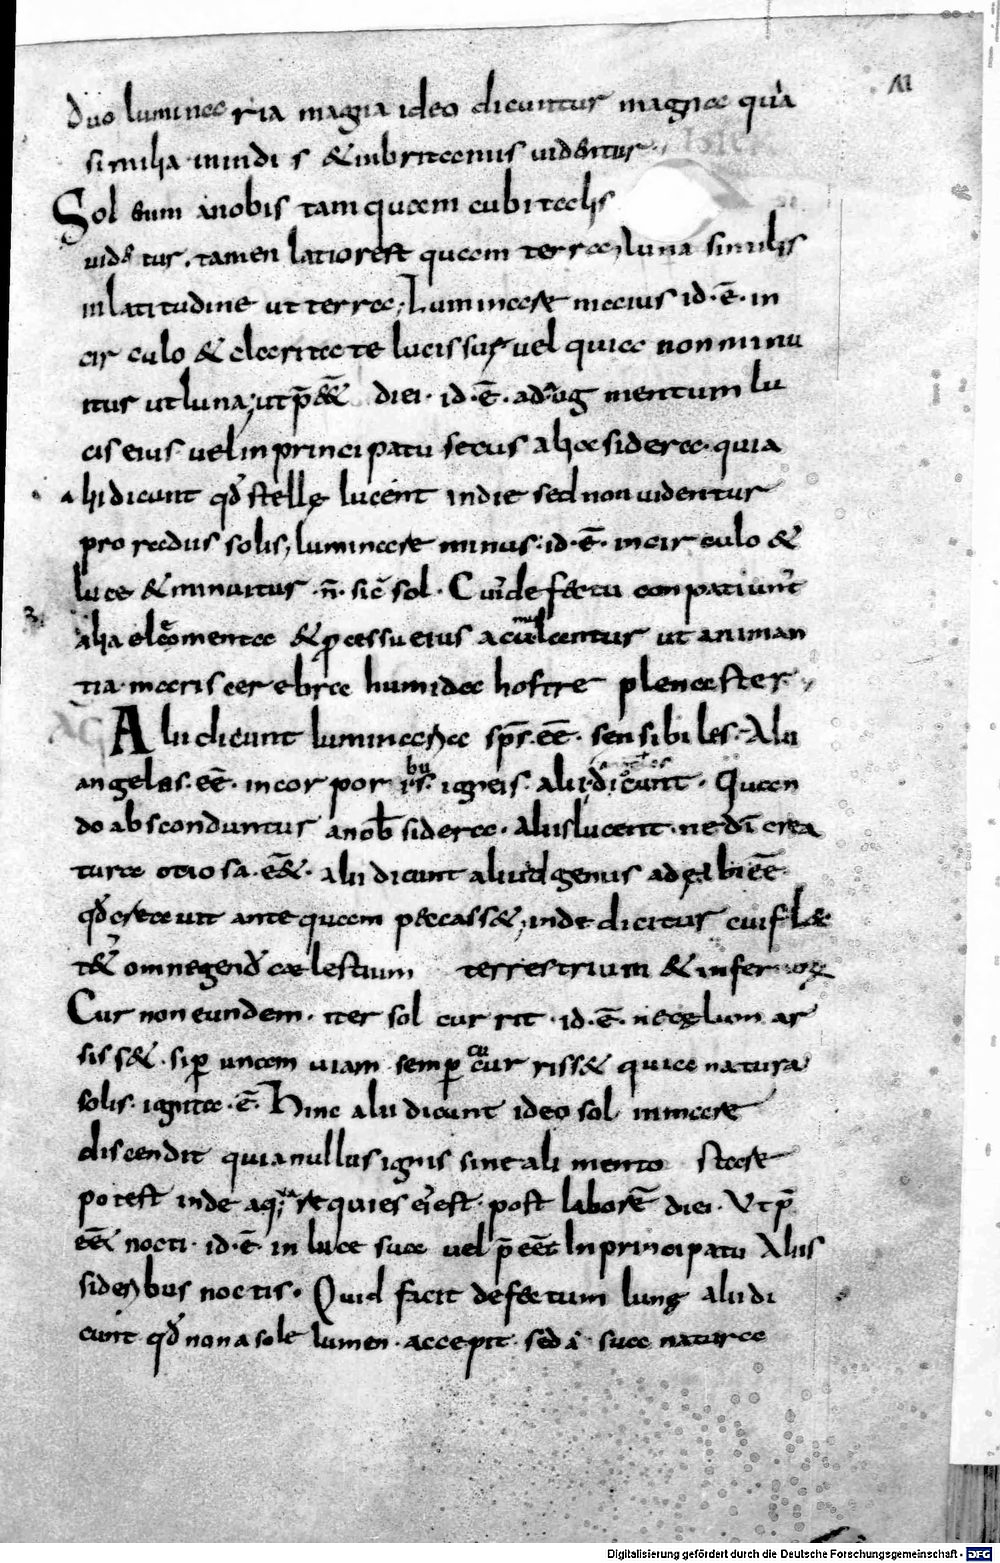 VI
duo luminaria magna ideo dicuntur magna quia
similia mundi s & inbritannis uidentur
Sol eum anobis tamquam cubitalis
uidetur. tamen latiorest quam terra; luna similis
inlatitudine ut terra; Luminare maius id·ē· in
circulo & claritate lucis suę uel quia non minu
itur utluna; utp̄eēt diei· id·ē· ad aug mentum lu
cis eius· uelin principatu secus alia sidera· quia
hi dicunt qđ stellę lucent indie sed non uidentur
pro radus solis; luminare minus· id·ē· incirculo &
luce & minuitur ·n̄· sic̄ sol· Cui defectu conpatiunt̄
alia elementa & p̱cessu eius acumulantur ut animan
tia maris cerebra humida hostre plena ster·
Alii dicunt luminaria sp̄s· eē· sensibiles· Alii
angelas· eē· incorporibus· igneis· alii dicunt· Quan
do absconduntur anob̄ sidera· aliislucent· ne dī crea
turæ otiosa· eēt· alii dicunt aliud genus ad eal bi eē·
qđ creauit antequam peccass&; inde dicitur cui flec
t& omne genū cælestium terrestrium & infernoꝝ
Cur non eundem· iter sol currit· id·ē· ne eglum ar
siss& · sip̱ unam uiam semp̱ cucurriss& quia natura
solis· ignita·ē· Hinc alii dicunt ideo sol inmare
discendit quianullus ignis sine alimento stare
potest inde aqꝫ requies ei est· post laborē diei· Utp̄
eēt nocti· id·ē· in luce sua uel p̄eēt Inprincipatu Aliis
sideribus noctis· Quid facit defectum lunę alii di
cunt qđ non a sole lumen· accepit· sed a· sua natura
Digitalisierung gefördert durch die Deutsche Forschungsgemeinschaft - DFG